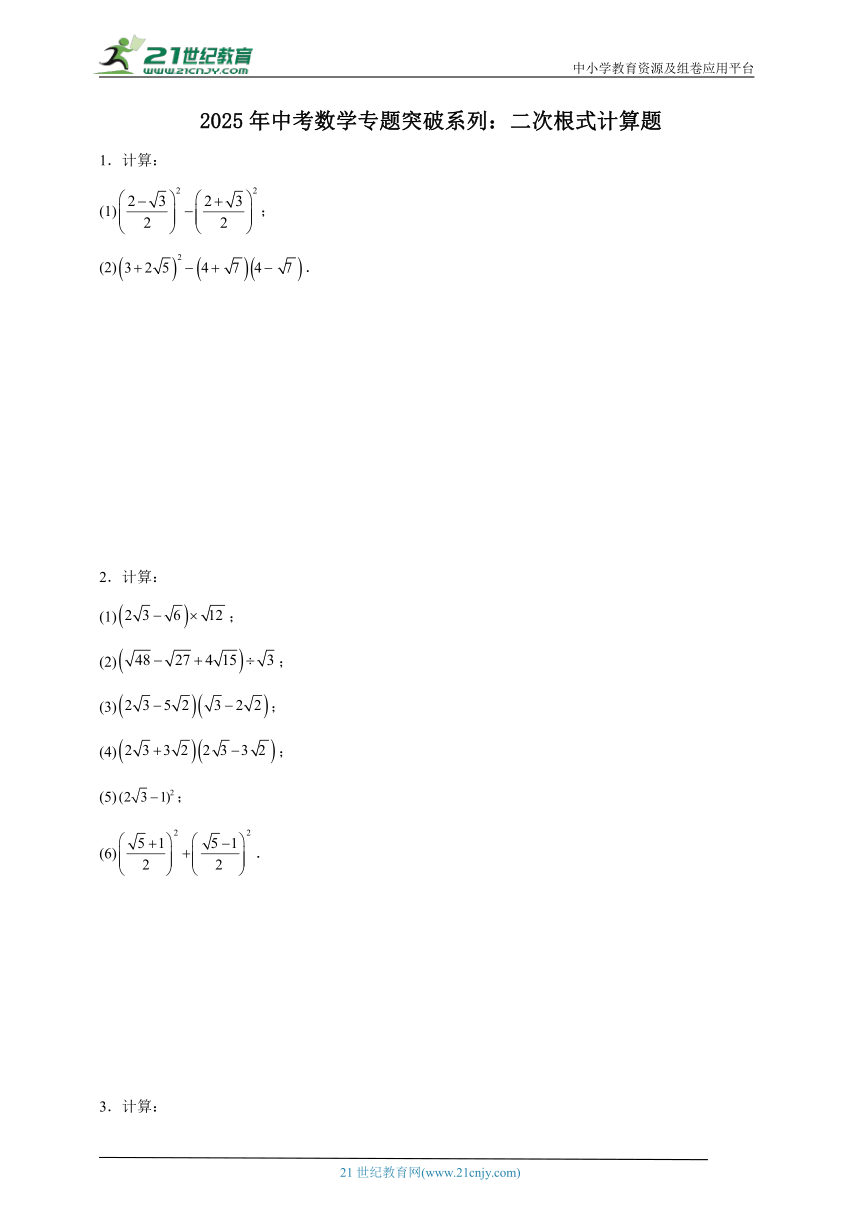 21世纪教育
WWW.21CNJY.COM
中小学教育资源及组卷应用平台
2025年中考数学专题突破系列：二次根式计算题
1．计算：
(1)((2−√3)/2)²−((2+√3)/2)²；
(2)(3+2√5)²−(4+√7)(4−√7)．
2．计算：
(1)(2√3−√6)×√12；
(2)(√48−√27+4√15)÷√3；
(3)(2√3−5√2)(√3−2√2)；
(4)(2√3+3√2)(2√3−3√2)；
(5)(2√3−1)²；
(6)((√5+1)/2)²+((√5−1)/2)²．
3．计算：
21世纪教育网(www.21cnjy.com)